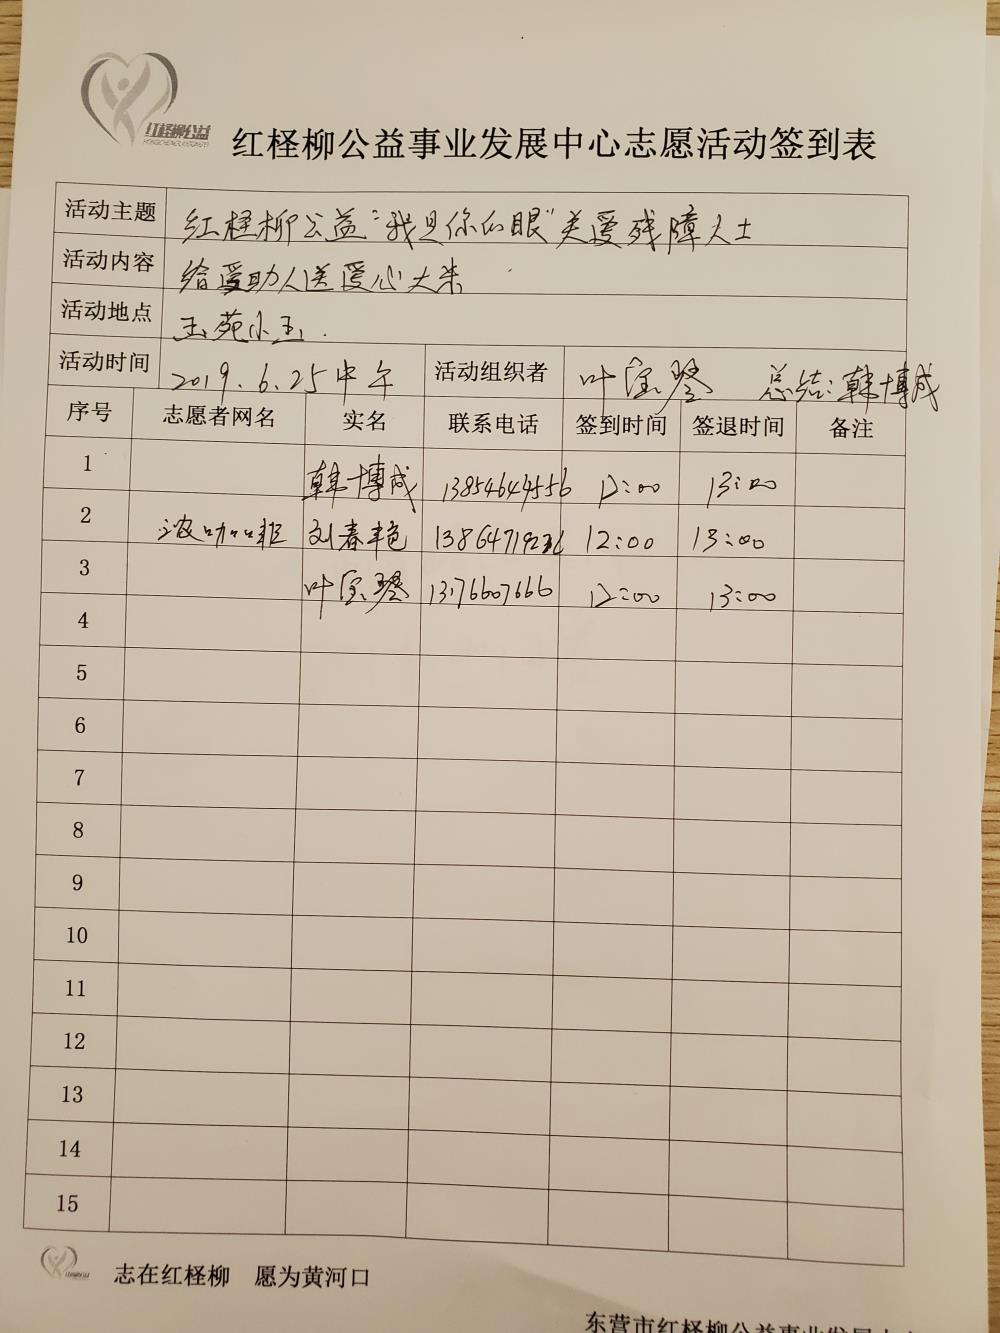 红柽柳公益
红柽柳公益事业发展中心志愿活动签到表
活动主题 红柽柳公益“我是你的眼”关爱残障人士
活动内容 给受助人送爱心大米
活动地点 玉苑小玉.
活动时间 2019.6.25中午 活动组织者 叶宝琴 总结:韩博成
序号 志愿者网名 实名 联系电话 签到时间 签退时间 备注
1 韩博成 13854649556 12:00 13:00
2 浓咖啡 刘春艳 12:00 13:00
3 叶宝琴 13176607666 12:00 13:00
4
5
6
7
8
9
10
11
12
13
14
15
志在红柽柳 愿为黄河口
东营市红柽柳公益事业发展中心